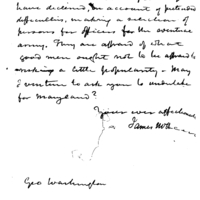 have declined, on account of pretended
difficulties, making a selection of
persons for officers for the eventual
army. They are afraid of what
good men ought not to be afraid
making a little popularity. May
I venture to ask you to undertake
for Maryland?
Yours ever affectionately
James McHenry
Geo Washington